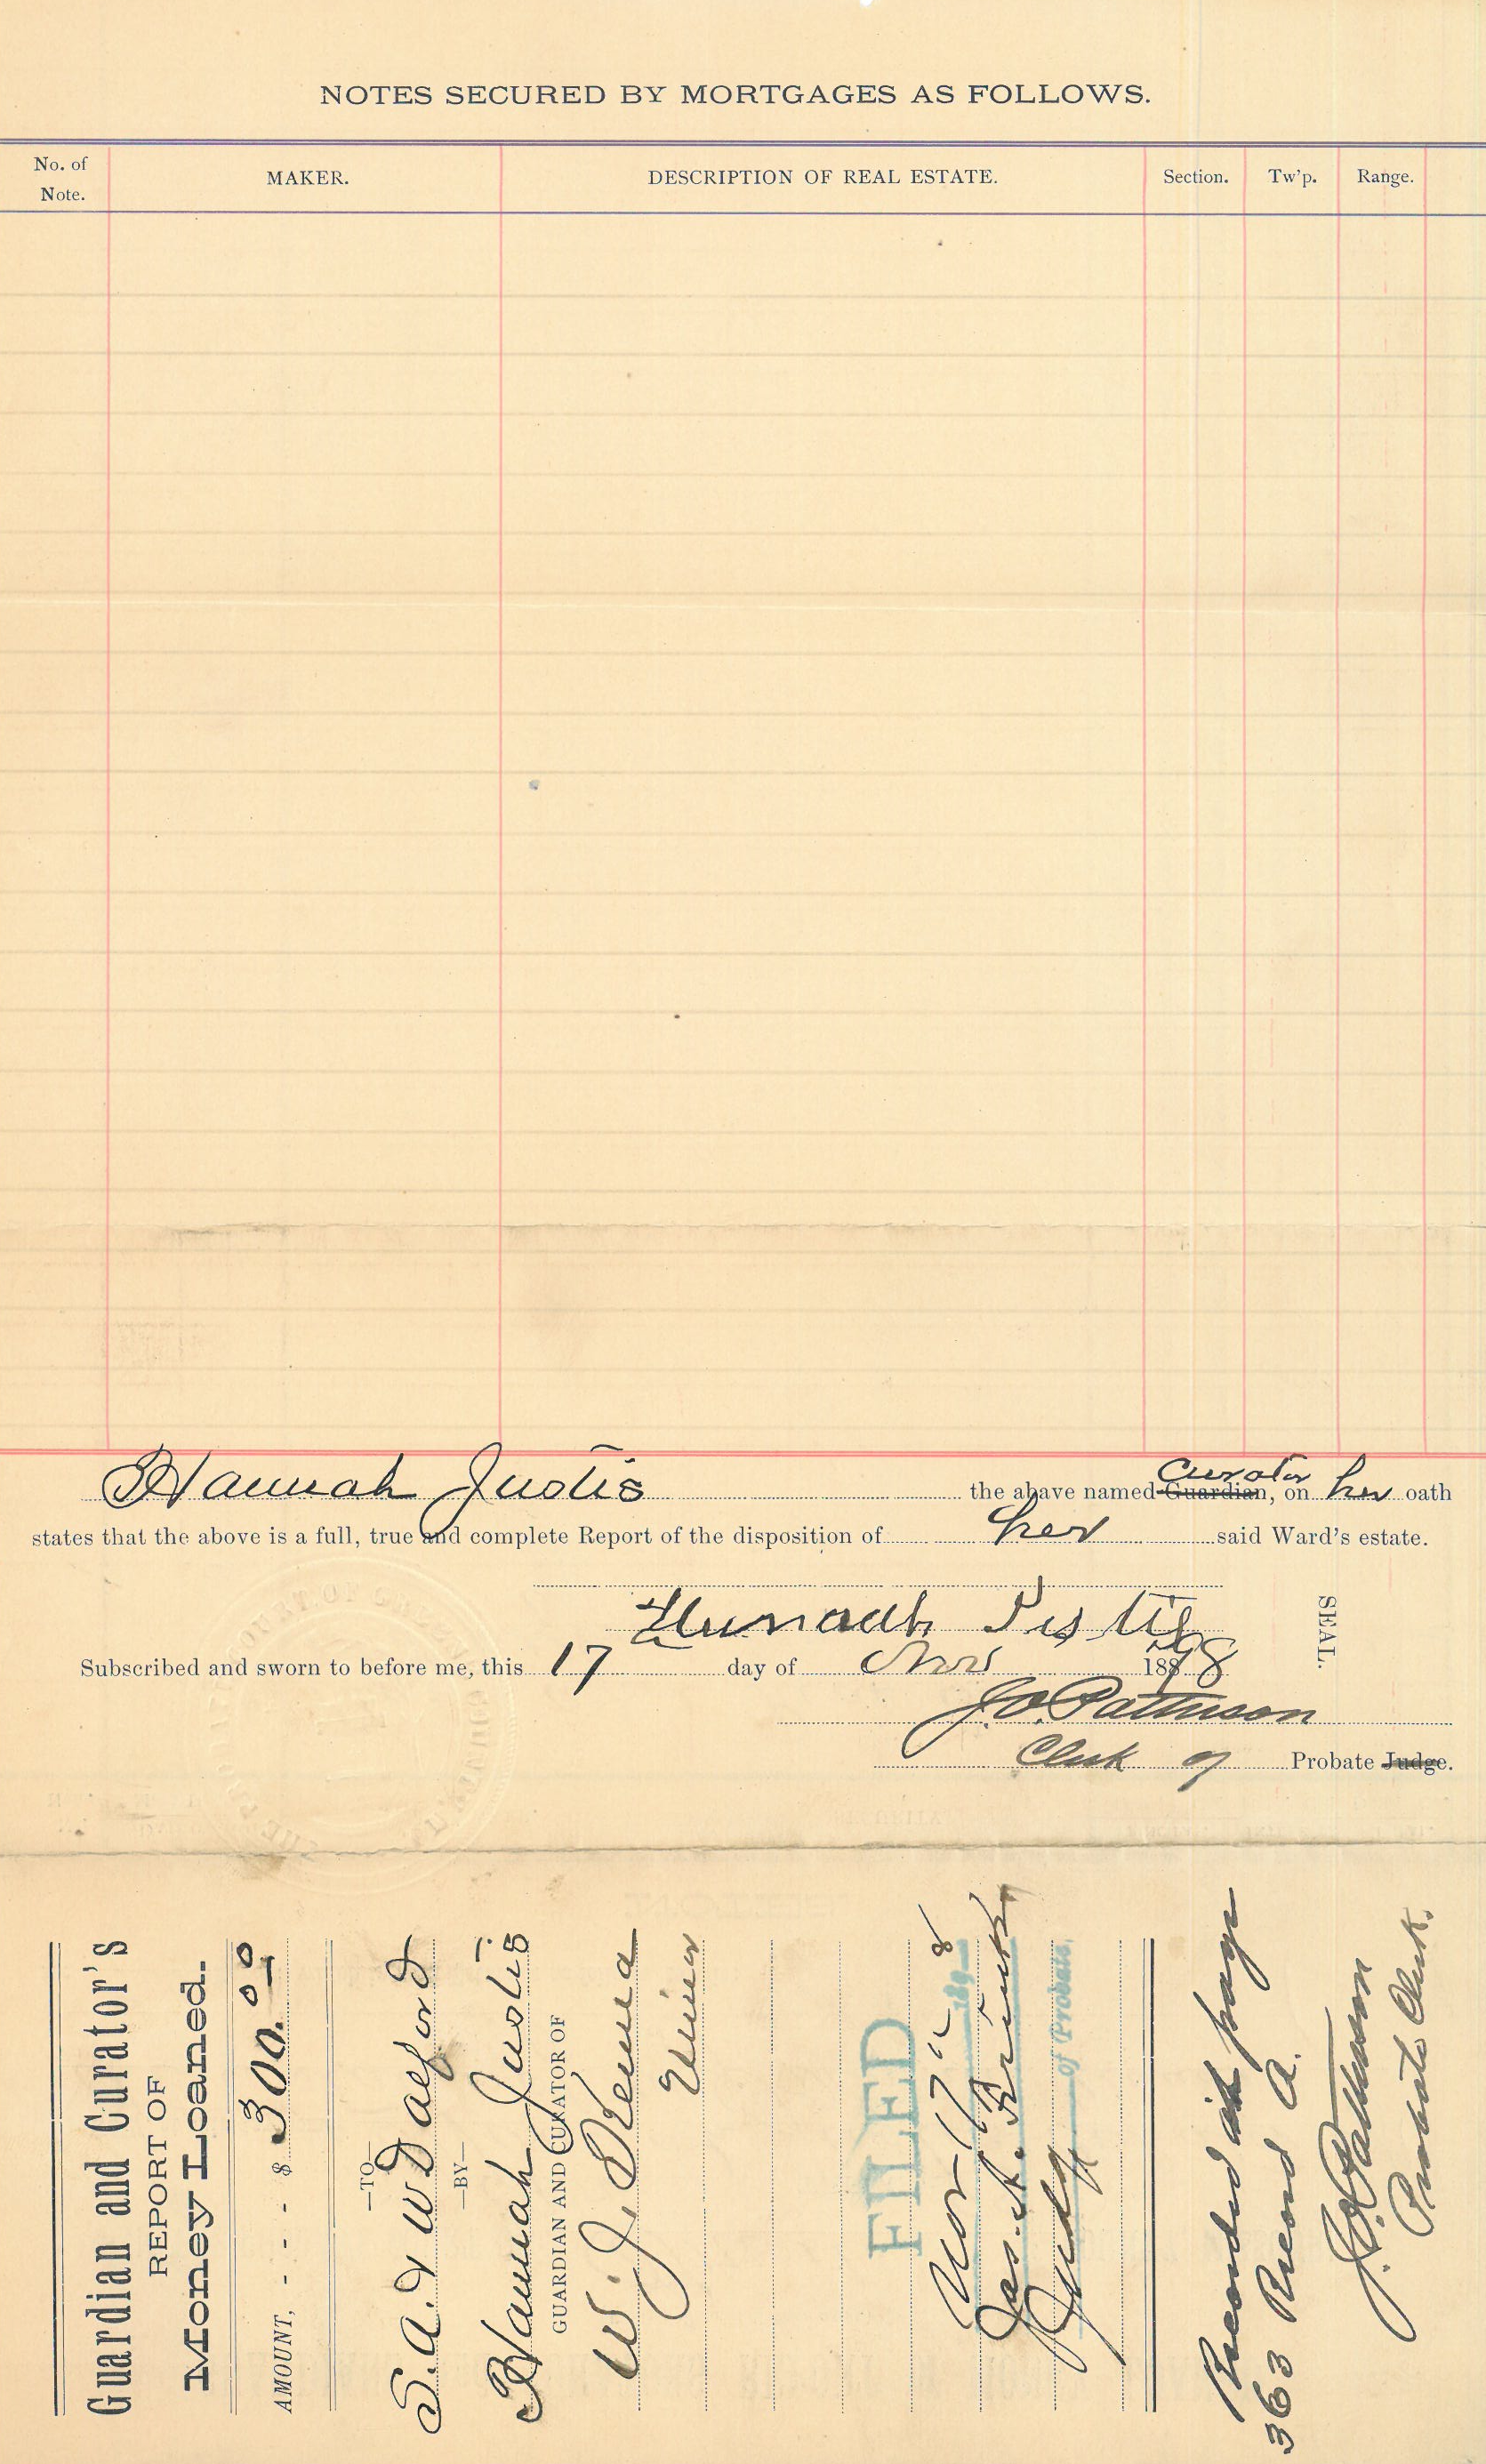 NOTES SECURED BY MORTGAGES AS FOLLOWS.
No. of Note.
MAKER.
DESCRIPTION OF REAL ESTATE.
Section.
Tw'p.
Range.
Hannah Justis the above named Guardian, Curator on her oath
states that the above is a full, true and complete Report of the disposition of her said Ward's estate.
Hunnadh Justis
SEAL.
Subscribed and sworn to before me, this 17 day of Nov 1898
J.O. Patterson
Clerk of Probate Judge.
Guardian and Curator's
REPORT OF
Money Loaned.
AMOUNT, - - - $ 300.00
—TO—
S.A. & W D
—BY—
Hannah Justis
GUARDIAN AND CURATOR OF
W. J. Kenna
Minor
FILED
Nov 17" 1898
Jas. A.
Judge of Probate.
Recorded at page
363 Record A.
J.O. Patterson
Probate Clerk.